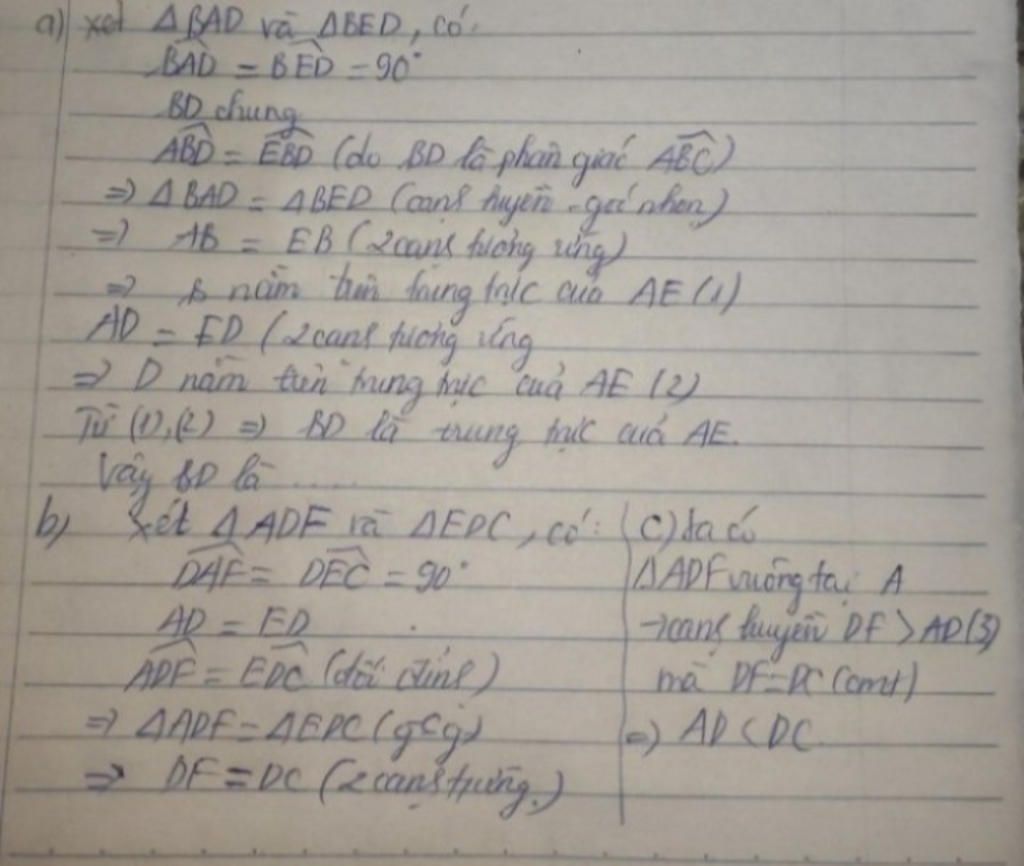 a) xét ΔBAD và ΔBED, có:
BAD = BED = 90°
BD chung
ABD = EBD (do BD là phân giác ABC)
=> ΔBAD = ΔBED (cạnh huyền - góc nhọn)
=> AB = EB (2 cạnh tương ứng)
=> B nằm trên trung trực của AE (1)
AD = ED (2 cạnh tương ứng
=> D nằm trên trung trực của AE (2)
Từ (1), (2) => BD là trung trực của AE.
Vậy BD là .....
b) Xét ΔADF và ΔEDC, có:
DAF = DEC = 90°
AD = ED
ADF = EDC (đối đỉnh)
=> ΔADF = ΔEDC (gcg)
=> DF = DC (2 cạnh tư ứng.)
C) ta có
ΔADF vuông tại A
→ cạnh huyền DF > AD (3)
mà DF = DC (cmt)
=> AD < DC